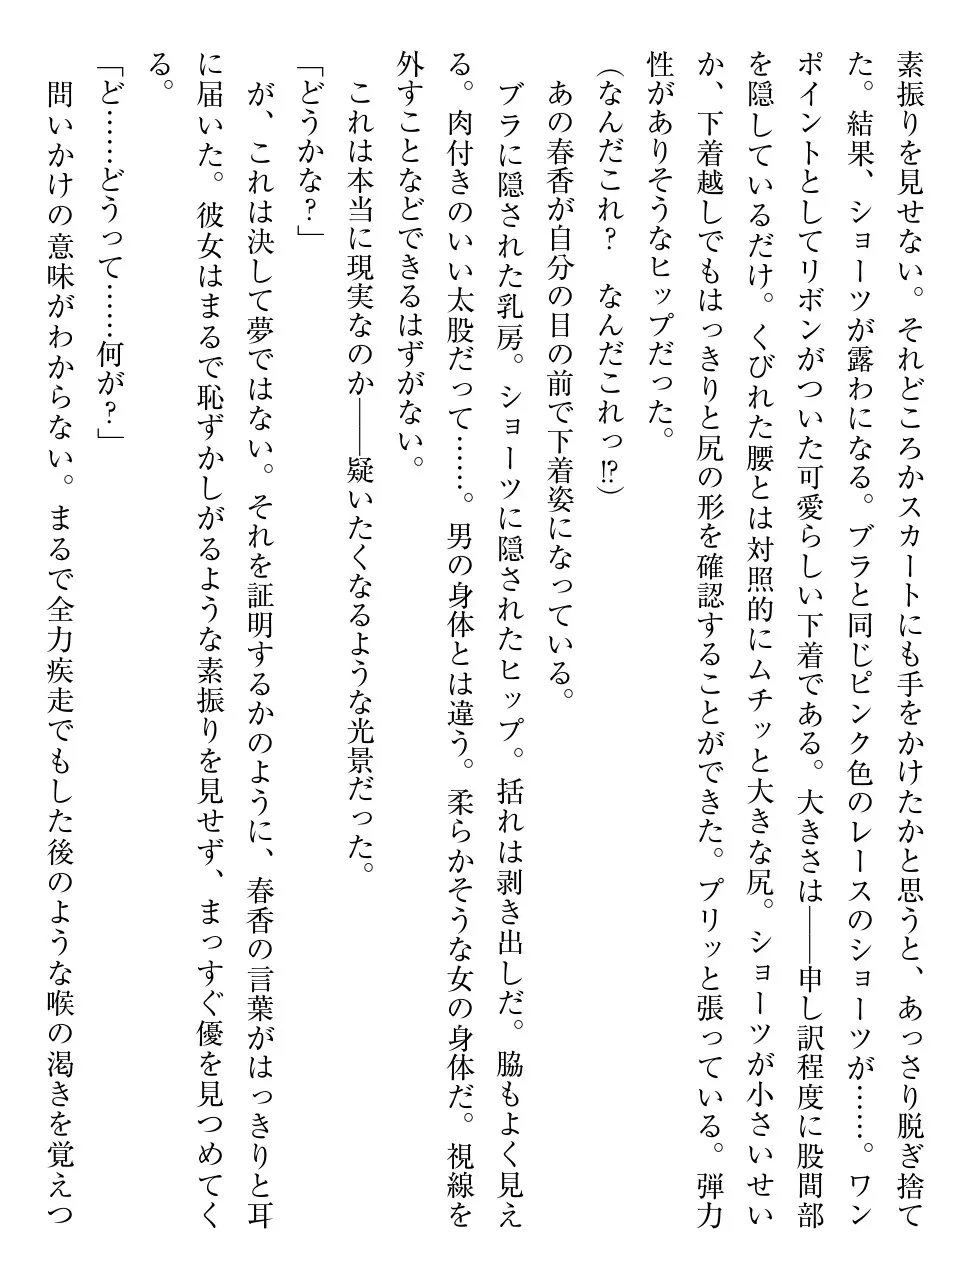 素振りを見せない。それどころかスカートにも手をかけたかと思うと、あっさり脱ぎ捨て
た。結果、ショーツが露わになる。ブラと同じピンク色のレースのショーツが……。ワン
ポイントとしてリボンがついた可愛らしい下着である。大きさは――申し訳程度に股間部
を隠しているだけ。くびれた腰とは対照的にムチッと大きな尻。ショーツが小さいせい
か、下着越しでもはっきりと尻の形を確認することができた。プリッと張っている。弾力
性がありそうなヒップだった。
(なんだこれ?　なんだこれっ!?)
あの春香が自分の目の前で下着姿になっている。
ブラに隠された乳房。ショーツに隠されたヒップ。括れは剥き出しだ。脇もよく見え
る。肉付きのいい太股だって……。男の身体とは違う。柔らかそうな女の身体だ。視線を
外すことなどできるはずがない。
これは本当に現実なのか――疑いたくなるような光景だった。
「どうかな?」
が、これは決して夢ではない。それを証明するかのように、春香の言葉がはっきりと耳
に届いた。彼女はまるで恥ずかしがるような素振りを見せず、まっすぐ優を見つめてく
る。
「ど……どうって……何が?」
問いかけの意味がわからない。まるで全力疾走でもした後のような喉の渇きを覚えつ